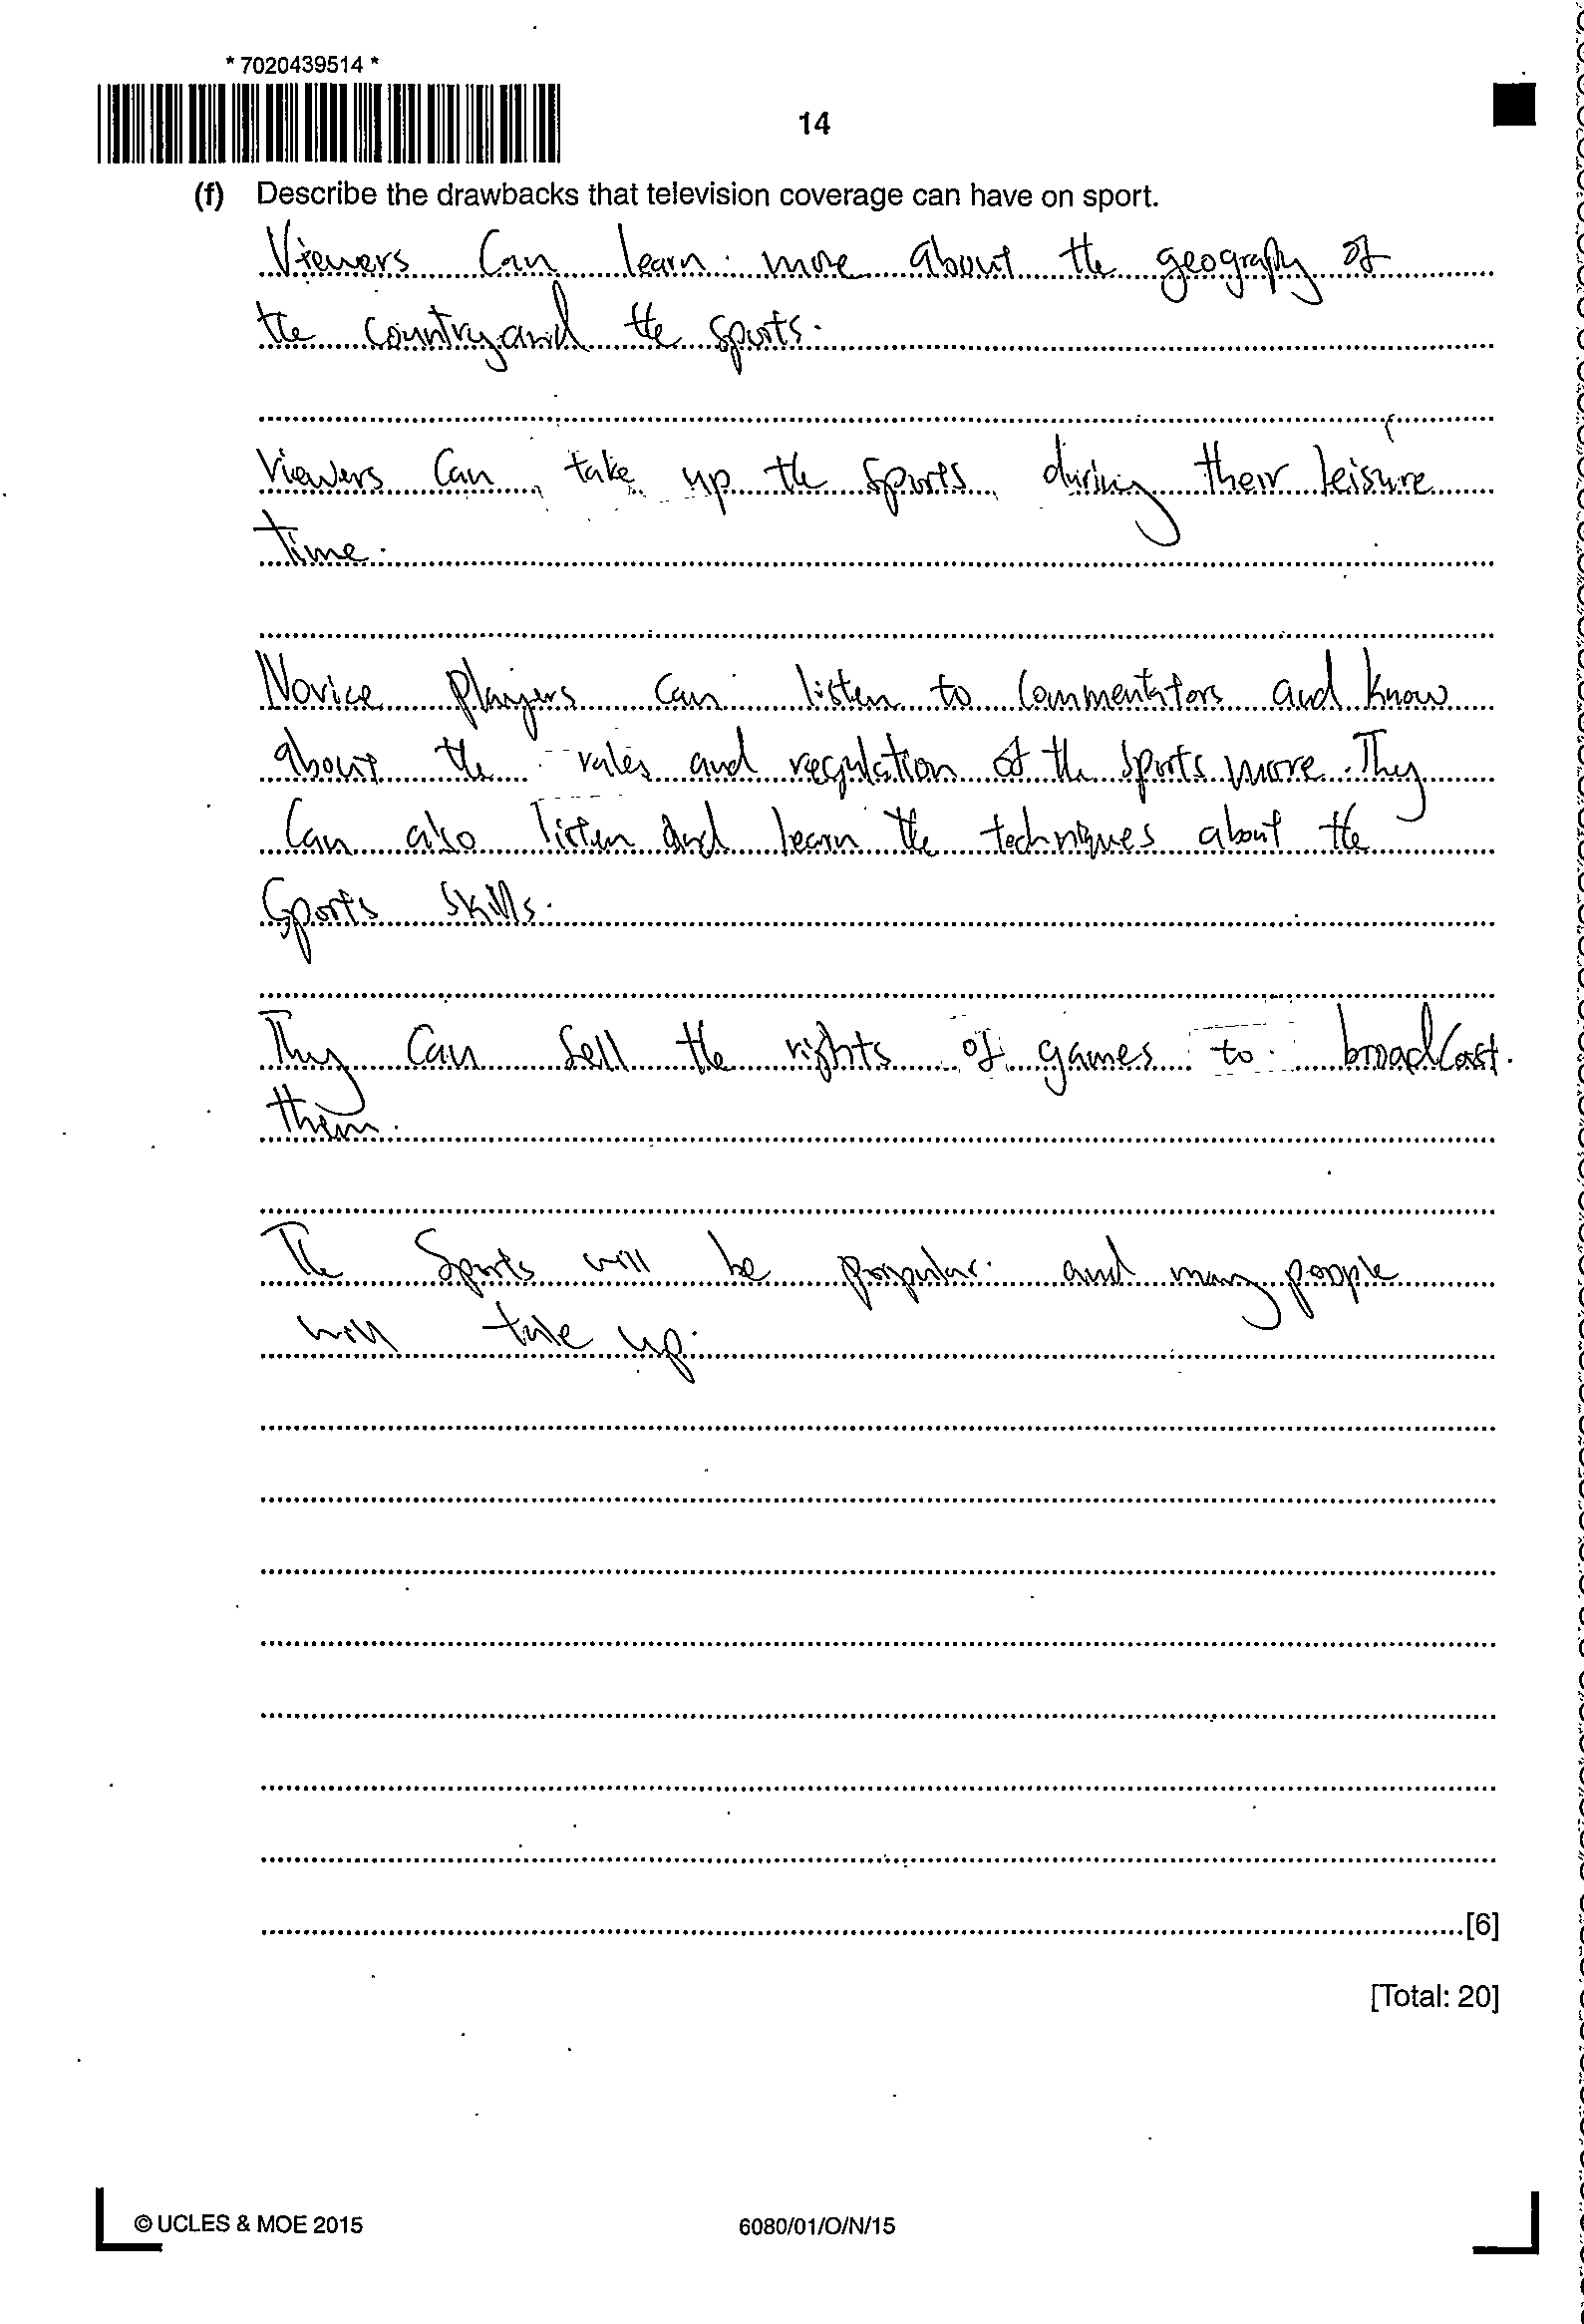 * 7020439514 *
14
(f) Describe the drawbacks that television coverage can have on sport.
Viewers can learn more about the geography of
the country and the sports.
Viewers can take up the sports during their leisure
time.
Novice players can listen to commentators and know
about the rules and regulation of the sports more. They
can also listen and learn the techniques about the
sports skills.
They can sell the rights of games to broadcast
them.
The sports will be popular and many people
will take up.
[6]
[Total: 20]
© UCLES & MOE 2015
6080/01/O/N/15